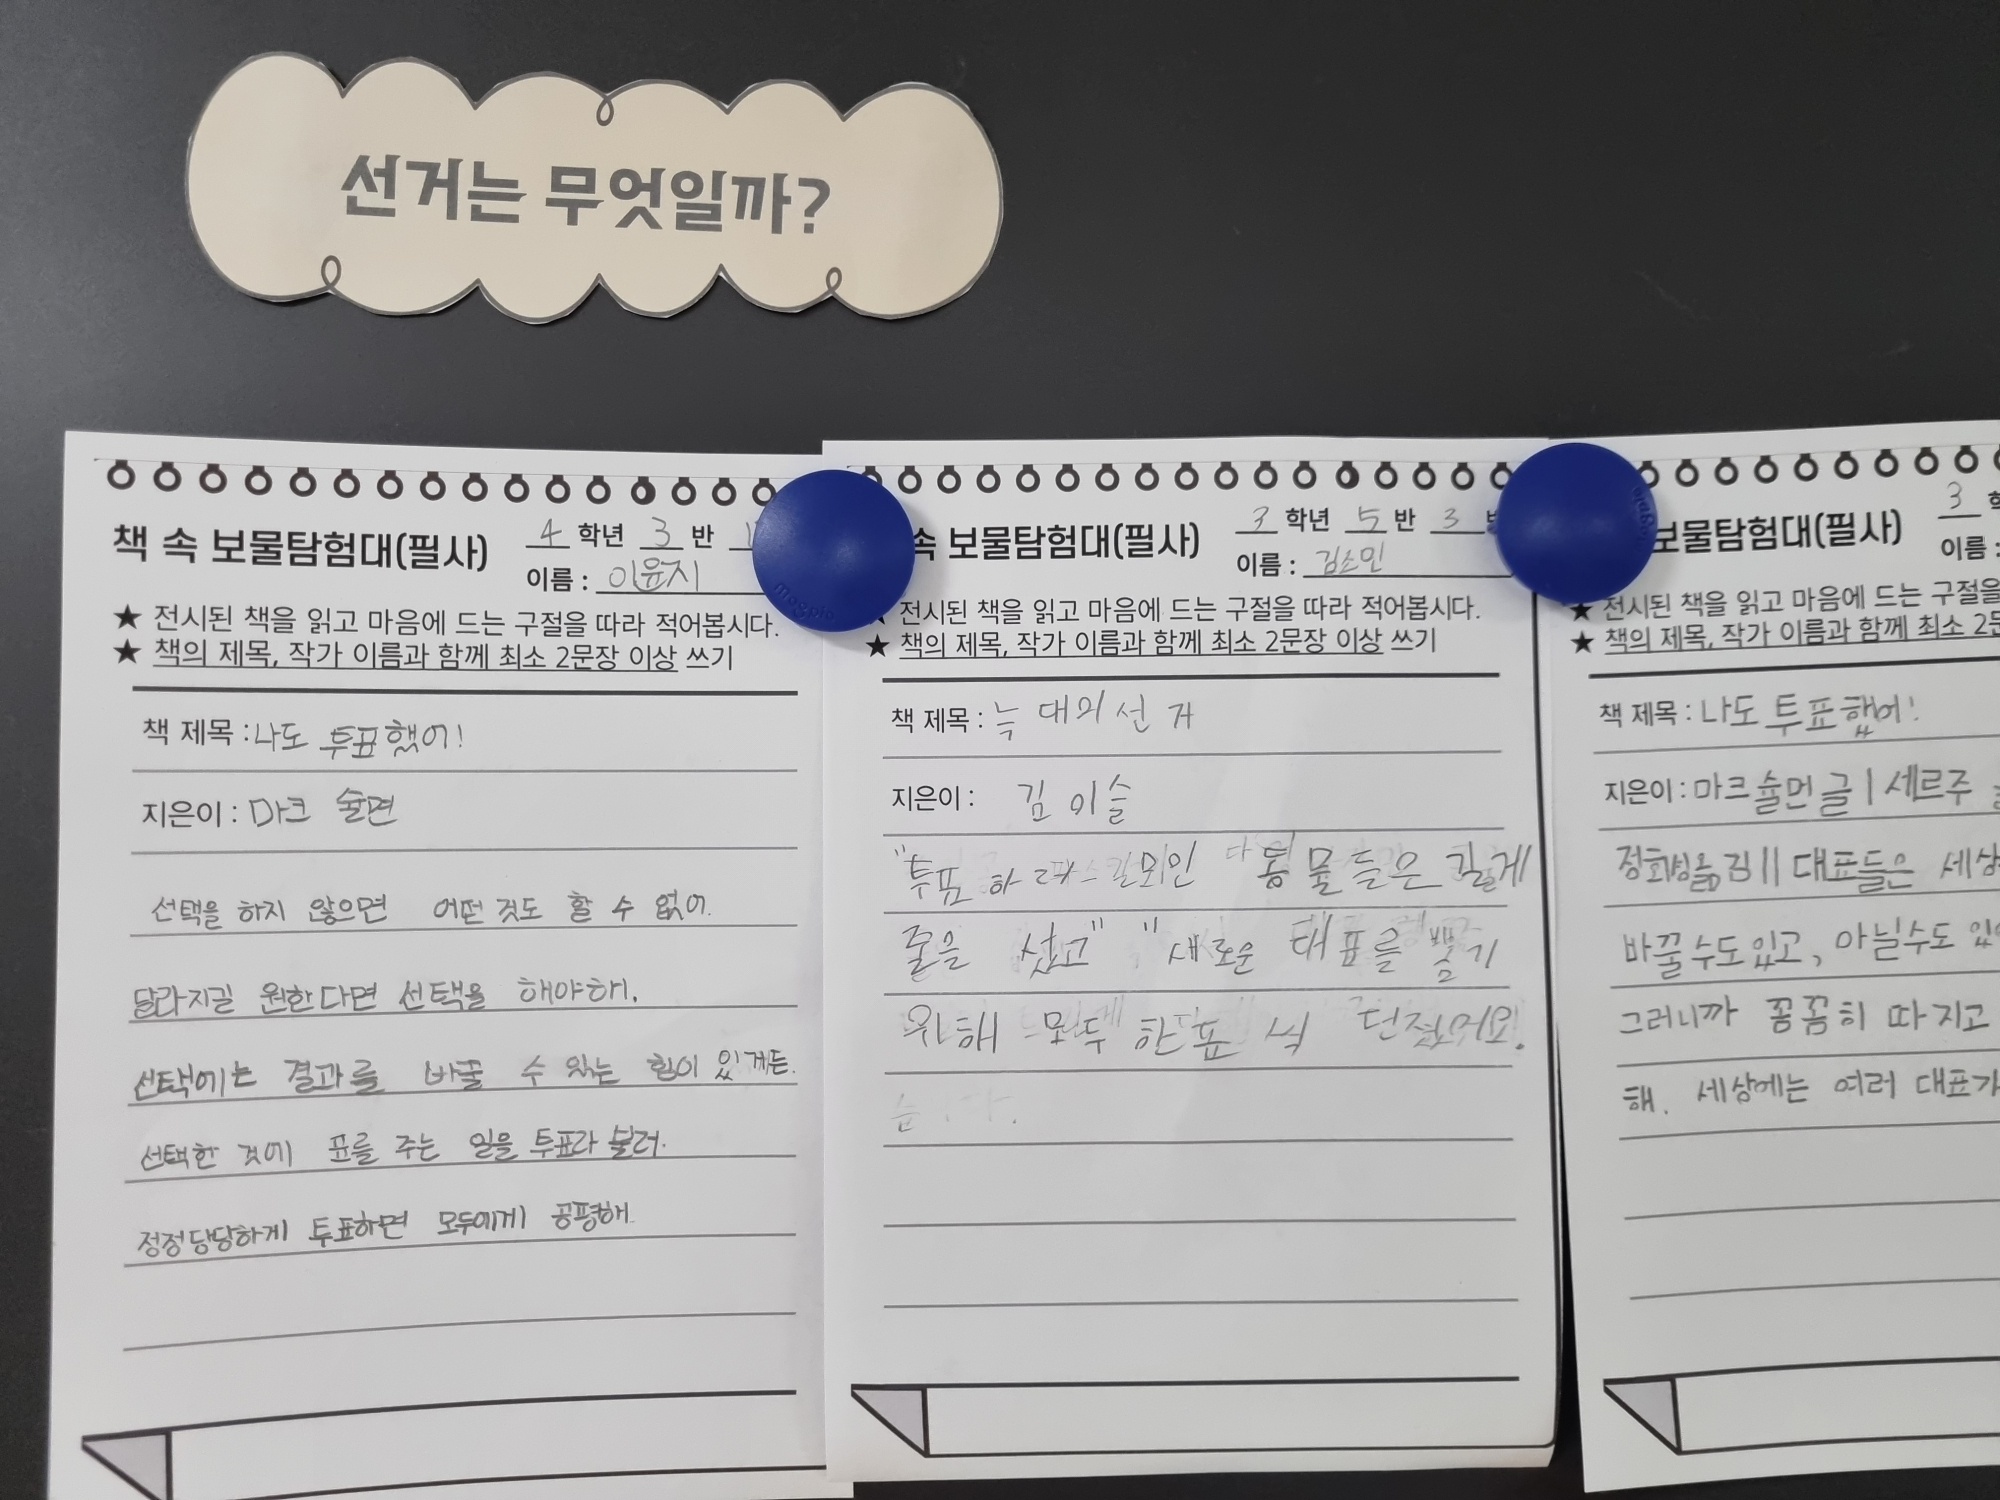 선거는 무엇일까?
책 속 보물탐험대(필사)
4 학년 3 반
이름 : 이윤지
★ 전시된 책을 읽고 마음에 드는 구절을 따라 적어봅시다.
★ 책의 제목, 작가 이름과 함께 최소 2문장 이상 쓰기
책 제목 : 나도 투표했어!
지은이 : 마크 슐먼
선택을 하지 않으면 어떤 것도 할 수 없어.
달라지길 원한다면 선택을 해야해.
선택에는 결과를 바꿀 수 있는 힘이 있거든.
선택한 것에 표를 주는 일을 투표라 불러.
정정당당하게 투표하면 모두에게 공평해.
속 보물탐험대(필사)
3 학년 5 반 3
이름 : 김소민
전시된 책을 읽고 마음에 드는 구절을 따라 적어봅시다.
★ 책의 제목, 작가 이름과 함께 최소 2문장 이상 쓰기
책 제목 : 늑대의 선거
지은이 : 김이슬
"투표 하 모인 동물들은 길게
줄을 섰고" "새로운 대표를 뽑기
위해 모두 한 표 씩 던졌어요.
보물탐험대(필사)
3
이름 :
★ 전시된 책을 읽고 마음에 드는 구절을
★ 책의 제목, 작가 이름과 함께 최소
책 제목 : 나도 투표했어!
지은이 : 마크 슐먼 글 | 세르주
정회성 옮김 || 대표들은 세상
바꿀수도 있고, 아닐수도
그러니까 꼼꼼히 따지고
해. 세상에는 여러 대표가